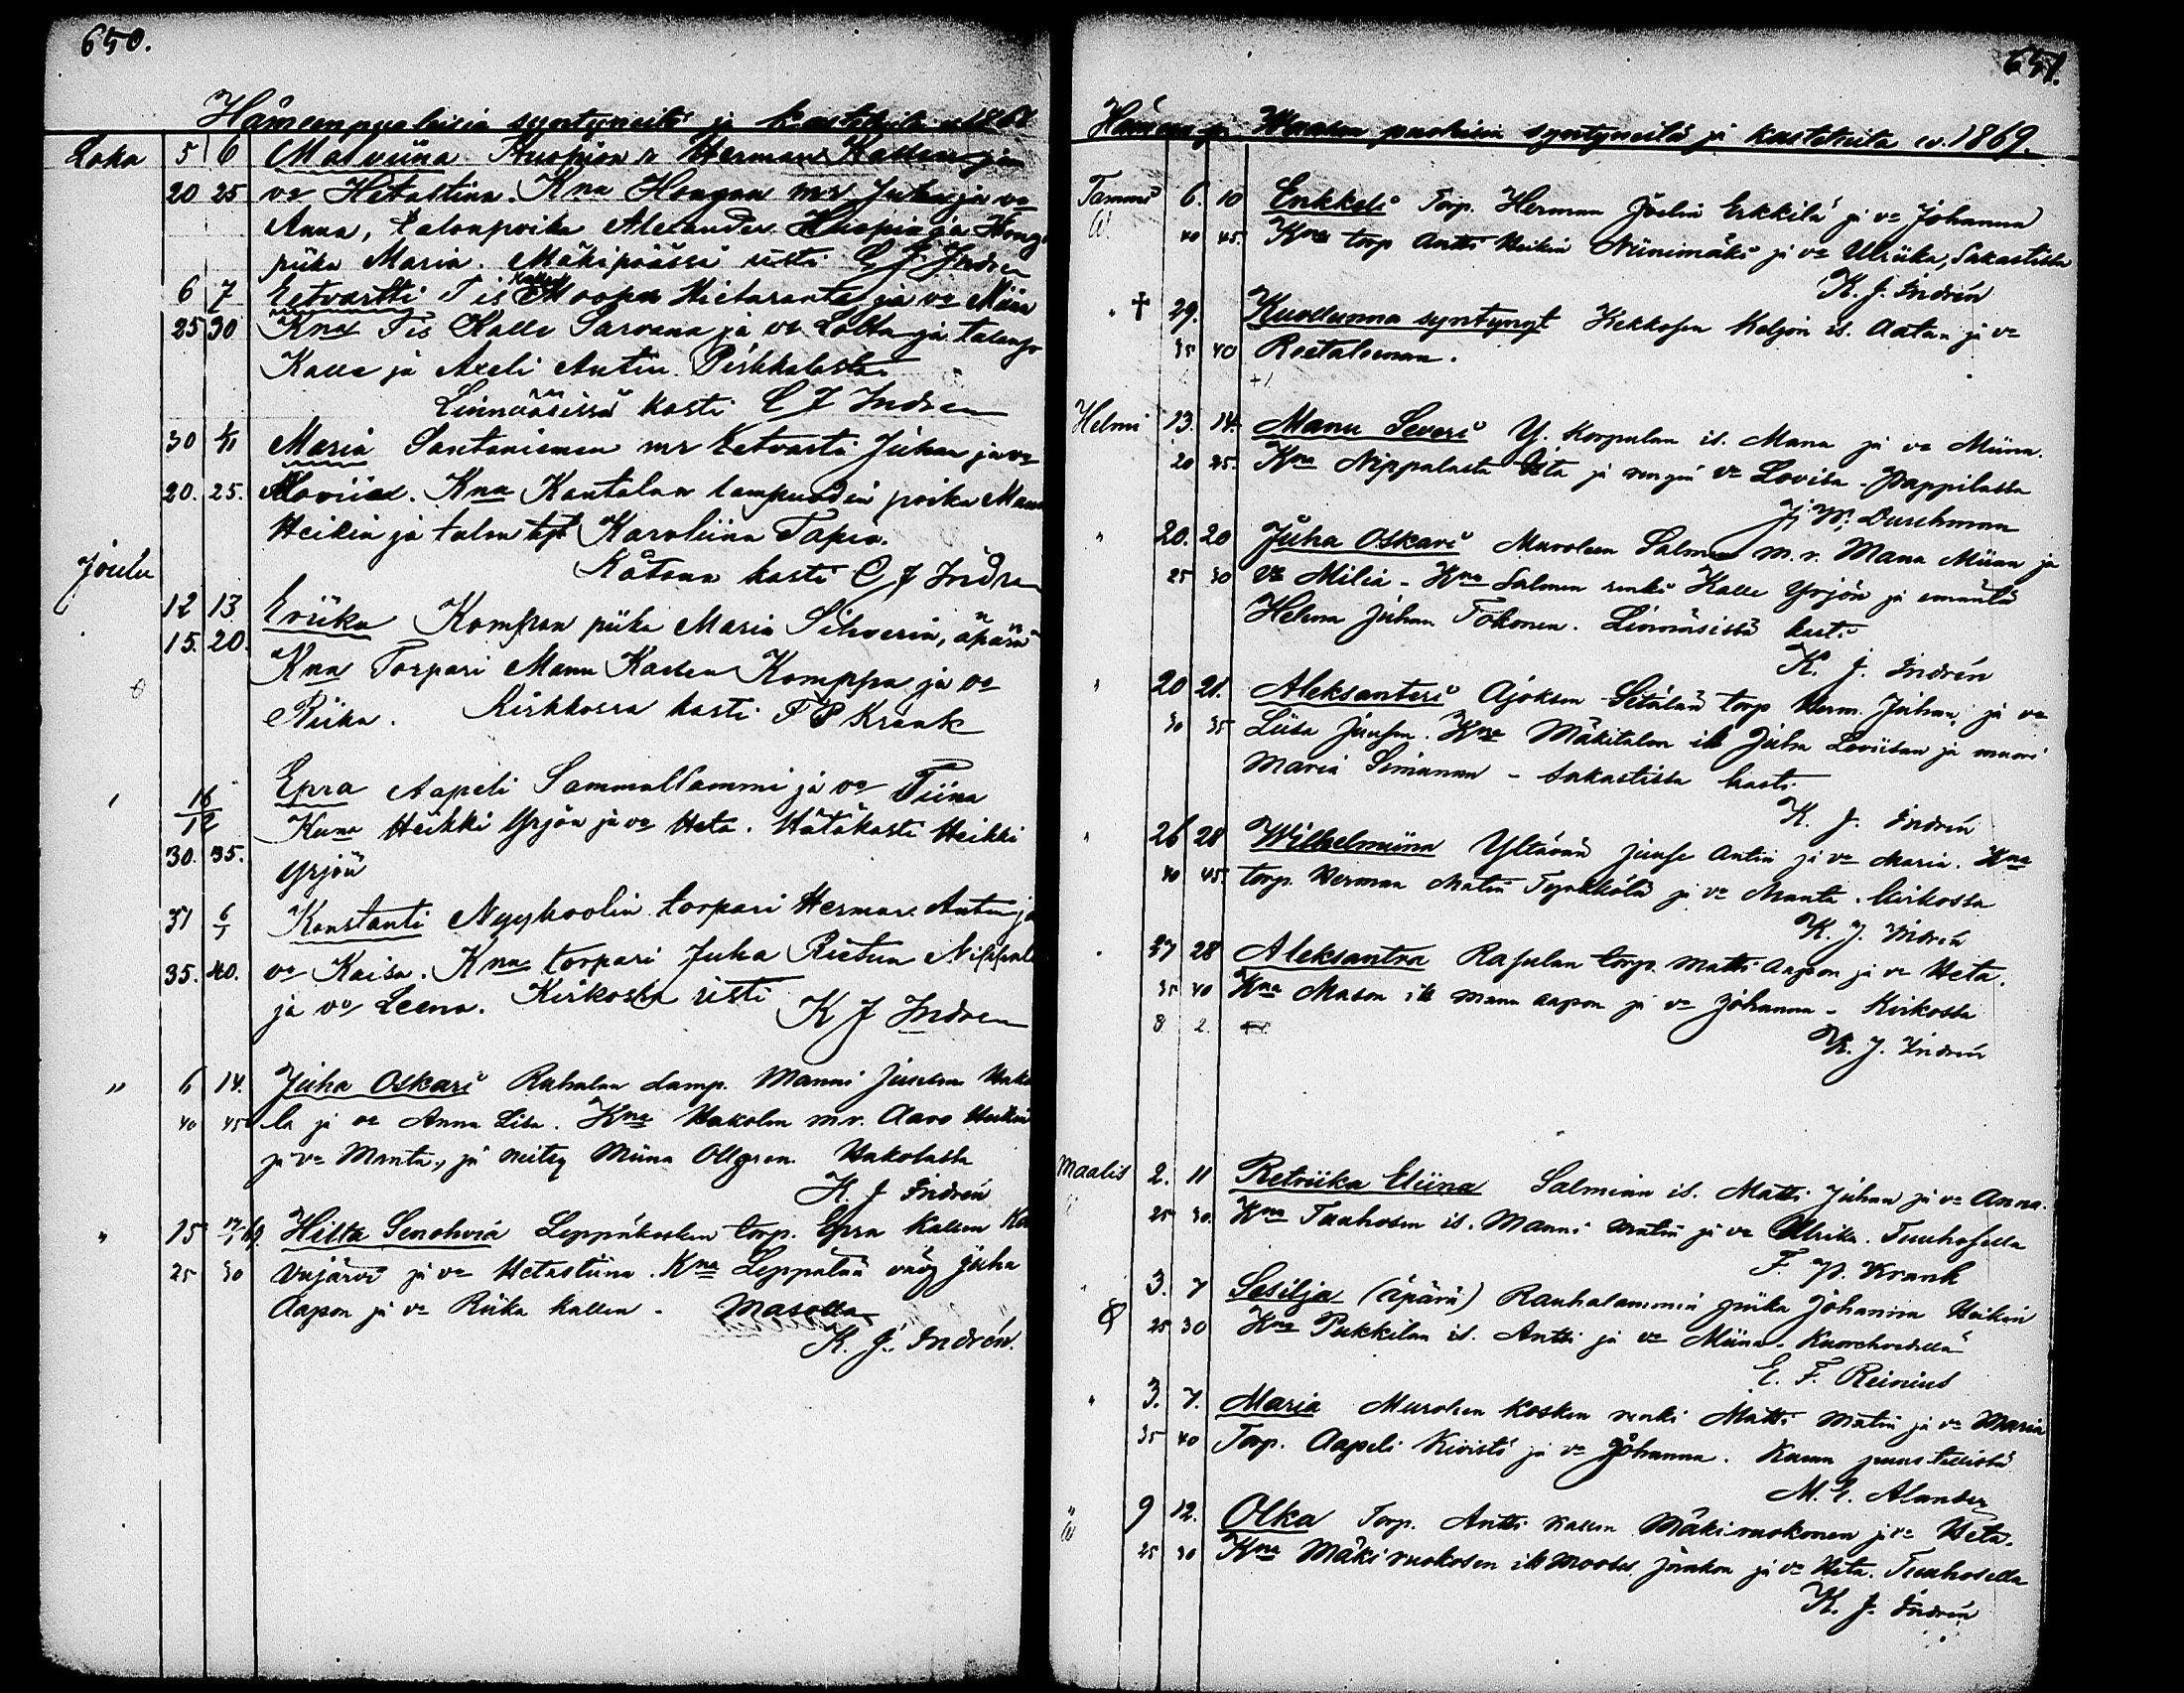 650.
Hämeenpuoleisia syntyneitä ja kastetuita v. 1868
Loka 5 6 Matviina Herman Kallen ja
20 25 vo Hetastiina. Kna Hongon mr Juha ja vo
Anna, talonpoika Alexander ja
piika Maria. Mäkipäässä risti C J Indren
6 7 Eetvartti Tis Kalle Moopen Hietaranta ja vo Miina
25 30 Kna Tis Kalle Sarvana ja vo Lotta ja
Kalle ja Axeli Antin Pirkkalasta.
kasti C J Indren
30 1/11 Maria Santaniemen mr Eetvarti Juhan ja vo
20. 25. Loviisa. Kna Kantalan lampuodin poika Manu
Heikin ja talon tyt Karoliina Tapio.
Kotona kasti C J Indren
Joulu
12 13 Eriika Kompan piika Maria Sihverin, äpärä
15. 20. Kna Torpari Manu Kallen Komppa ja vo
Riika. Kirkkossa kasti F P Krank
16/12 Epra Aapeli Sammallammi ja vo Tiina
Kuna Heikki Yrjön ja vo Heta. Hätäkasti Heikki
30. 35. Yrjön
31 6/1 Konstanti Nyyhoolin torpari Herman Antin ja
35. 40. vo Kaisa. Kna torpari Juha Rietun
ja vo Leena. Kirkossa risti K J Indren
" 6 14. Juha Oskari Rahalan lamp. Manni Juusen Hako
40 45 la ja vo Anna Lisa. Kna Hakolan mr. Aaro Heikin
ja vo Manta, ja neitsy Miina Ollgren. Hakolassa
K. J. Indrén
" 15 17/1 69. Hilta Senohvia Leppäkosken torp. Epra Kallen
25 30 ja vo Hetastiina. Kna Leppälän Juha
Aapon ja vo Riika Kallen. Masolla
K. J. Indrén.
651.
Hämeen ja Waasan puoleisia syntyneitä ja kastetuita v. 1869.
Tammi 6. 10 Enkkeli Torp. Herman Joelin Erkkilä ja vo Johanna
40 45. Kna torp Antti Heikin Niinimäki ja vo Ulriika, Sakastissa
K. J. Indrén
" † 29. Kuolluna syntynyt Kekkosen Keljon is. Aatan ja vo
35 40
+1.
Helmi 13. 14. Manu Severi Y. Korpulan is. Manu ja vo Miina.
20 25. Kna Nippalasta ja rengin vo Lovisa. Pappilassa
J. W. Durchman
" 20. 20 Juha Oskari Muroleen Salmen m.r. Manu Miinan ja
25 30 vo Milia. Kna Salmen renki Kalle Yrjön ja emäntä
Helena Juhan Tokonen. kasti
K. J. Indrén
" 20 21. Aleksanteri Ajoksen Setälän torp Herm. Juhan ja vo
30 35 Liisa Juusen. Kna Mäkitalon is Juha Loviisan ja muori
Maria Simunan – Sakastissa kasti
K. J. Indrén
" 26 28 Wilhelmiina Yltävän Juuse Antin ja vo Maria. Kna
40 45. torp. Herman Matin Tyrkkölä ja vo Manta. Kirkossa
K. J. Indrén
" 27 28 Aleksantra Rasulan torp. Matti Aapon ja vo Heta.
35 40 Kna Mason is Manu Aapon ja vo Johanna – Kirkossa
3. 2. K. J. Indrén
Maalis 2. 11 Retriika Eliina Salminin is. Matti Juhan ja vo Anna.
25 30. Kna Tuuhosen is. Manni Matin ja vo Ulrika. Tuuhosella
F. P. Krank
" 3. 7 Sesilja (äpärä) Rauhalammin piika Johanna Heikin
25 30 Kna Pukkilan is. Antti ja vo Miina.
E. F. Reinius
" 3. 7. Maria Muroleen Kosken renki Matti Matin ja vo Maria
35 40 Torp. Aapeli Kivistö ja vo Johanna. Kuruu puustellissa
M. E. Alander
" 9 12. Olka Torp. Antti Kallen Mäkiruokonen ja vo Heta.
25 30 Kna Mäkiruokosen is Mooses Joonkon ja vo Heta. Tuuhosella
K. J. Indrén